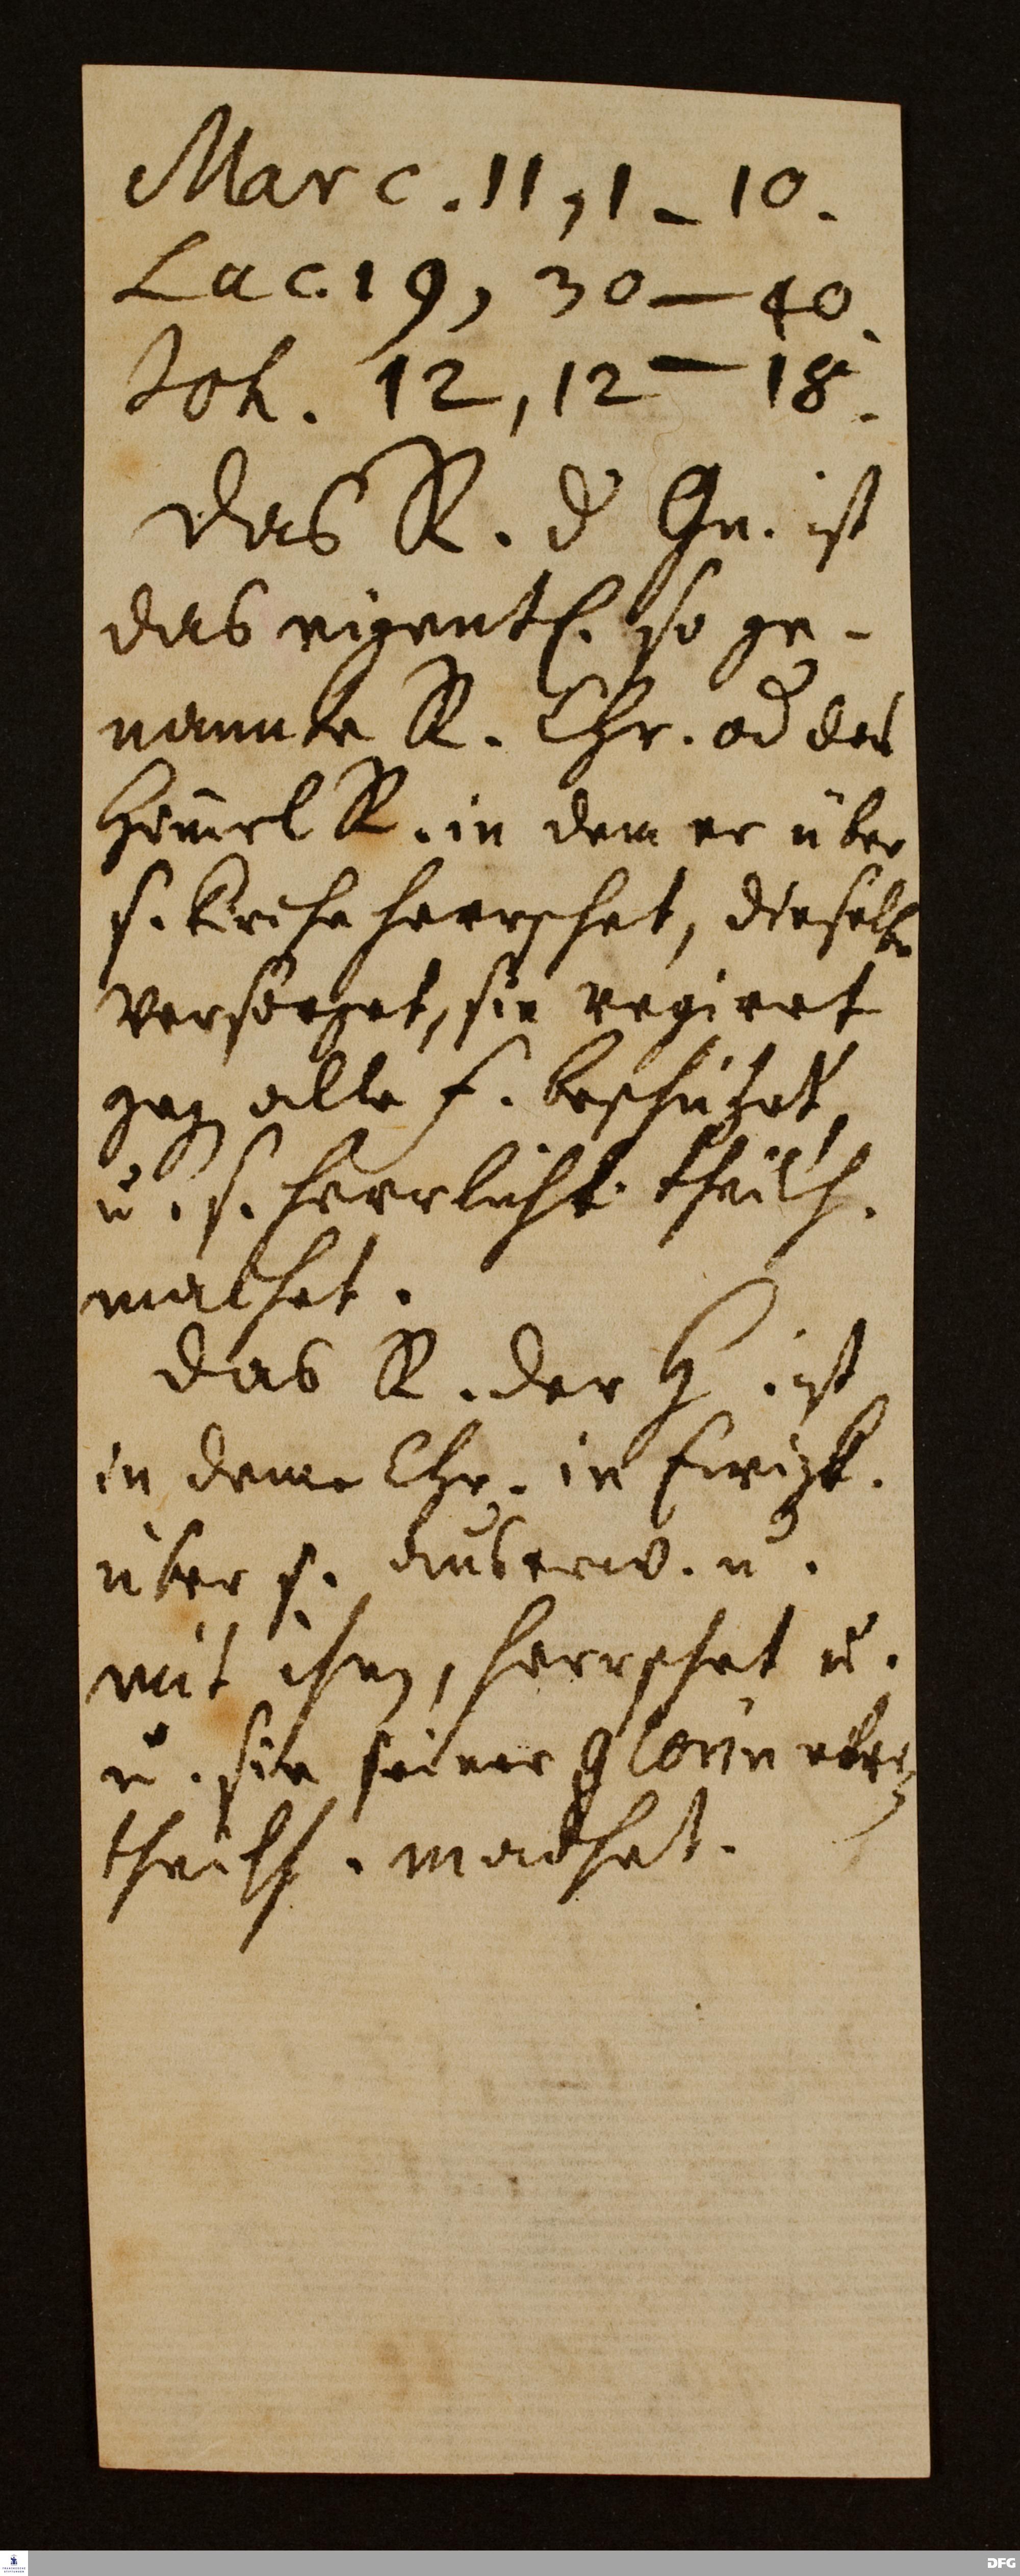 Marc. 11, 1 - 10.
Luc. 19, 30 — 40.
Joh. 12, 12 — 18.
Das R. d Gn. ist
das eigentl. so ge-
nannte R. Chr. od das
Himel R. in dem er über
s. Kirche herrschet, dieselbe
versorget, sie regiret
geg alle f. beschützet,
u. s. Herrlichk. theilh.
machet.
Das R. der H. ist
in deme Chr. in Ewigk.
über s. auserw. u.
mit ihen, herrschet u.
u. sie seiner glorie
theilh. machet.
DFG